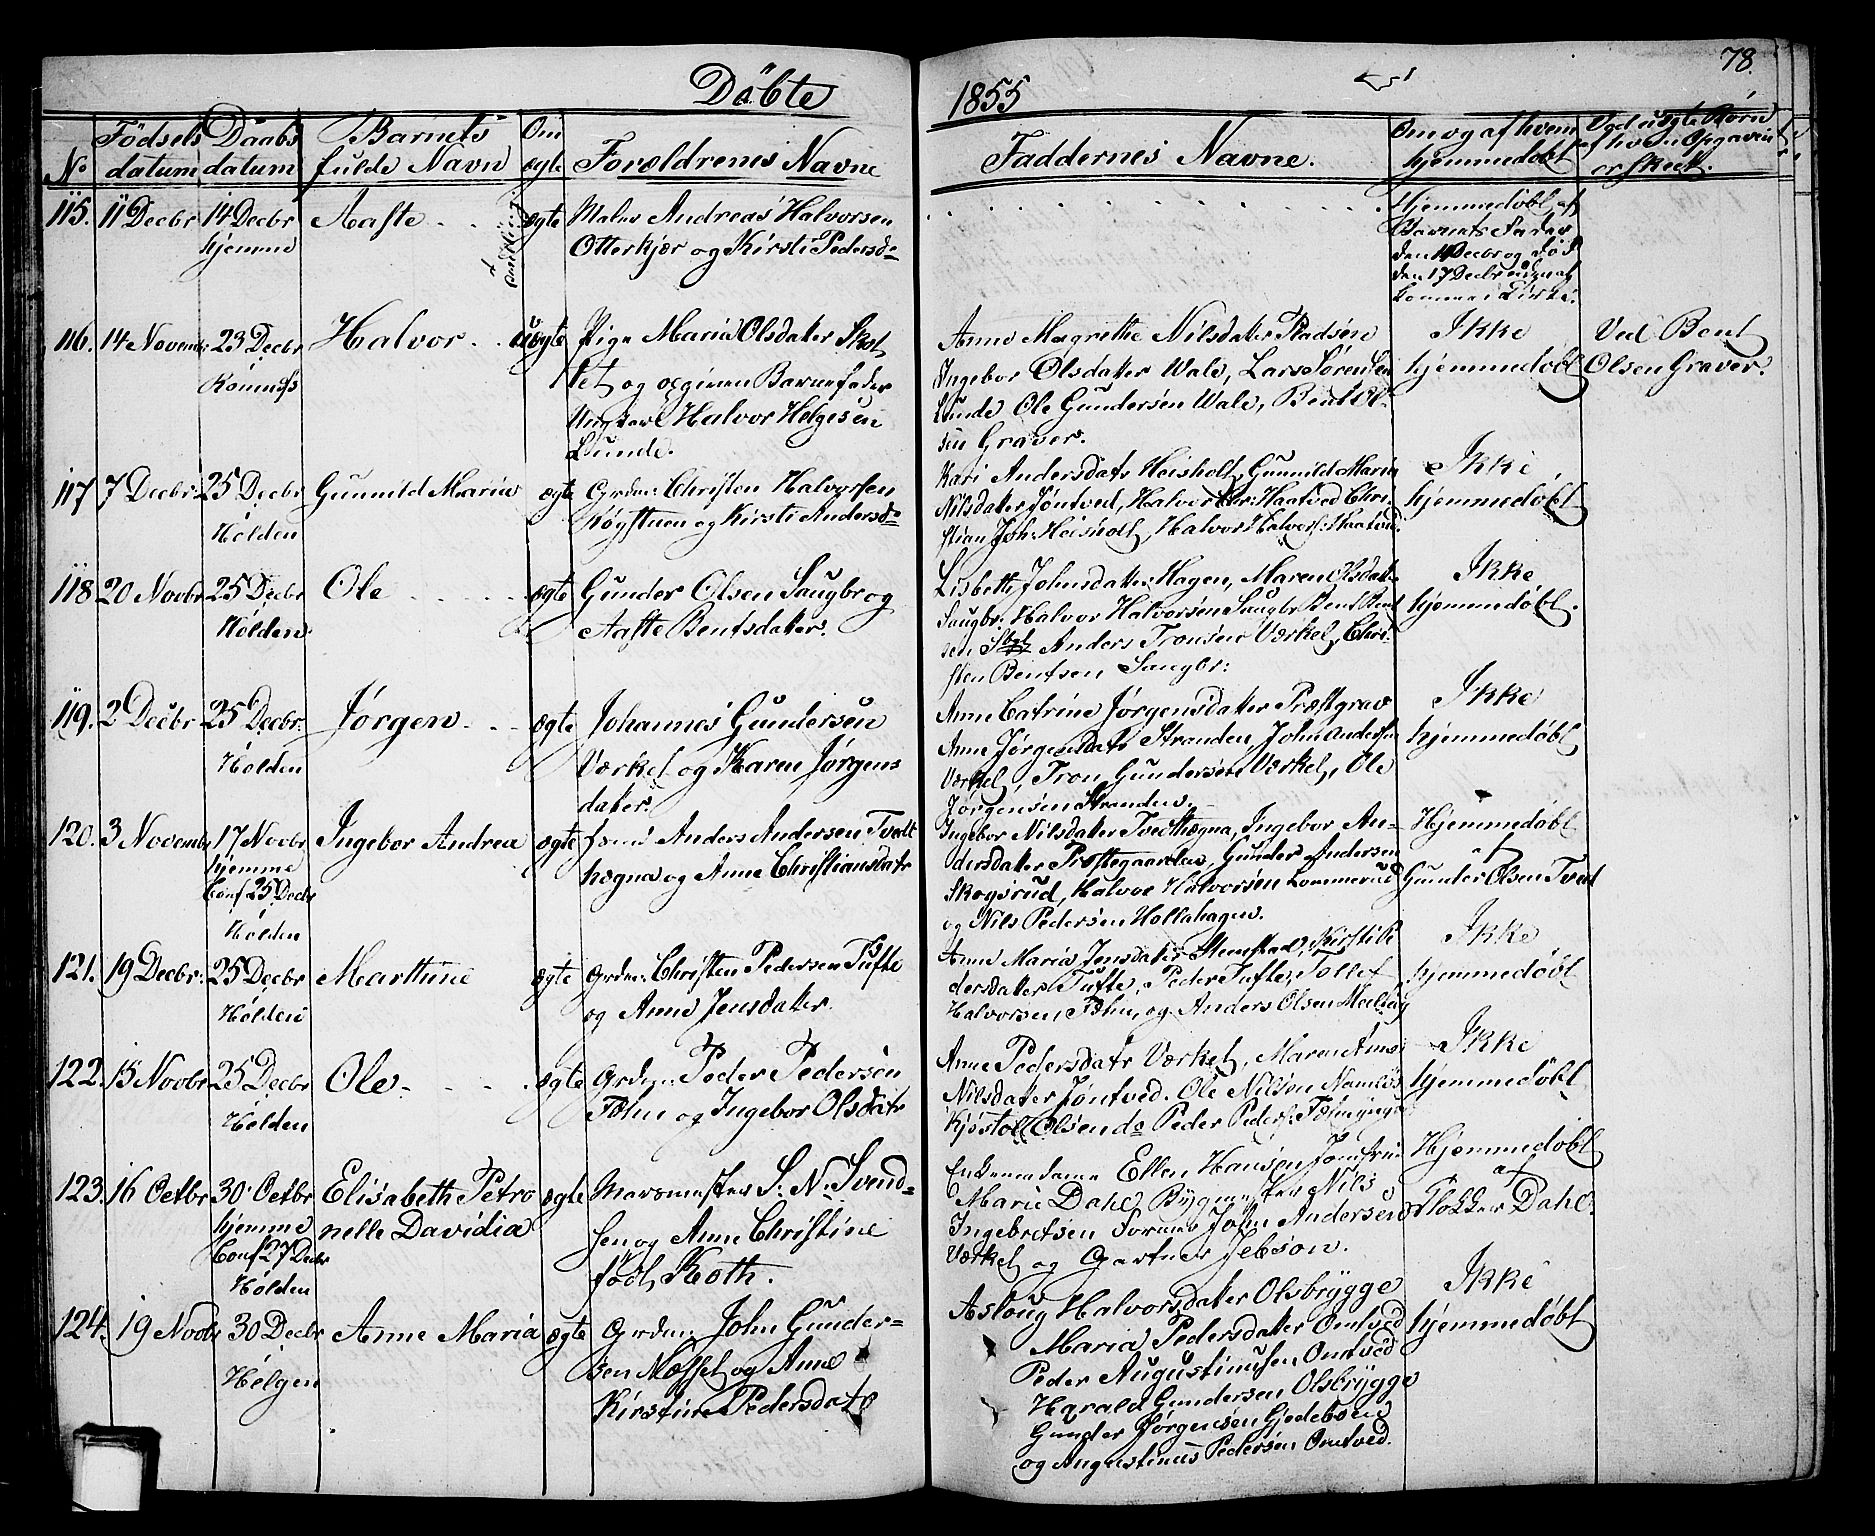 Döbte
1855
78.
No Födsels datum Daabs datum Barnets fulde Navn Om ægte Forældrenes Navne Faddernes Navne. Om og af hvem hjemmedöbt Ved uægte Børn af hvem Opgaven er skeet.
115. 11 Decbr 14 Decbr Aaste ægte Andreas Halvorsen
hjemme Otterkjær og Kirsti Pedersd.
Hjemmedöbt af
Barnets Fader
den 14 Decbr og død
den 17 Decbr
116. 14 Novemb: 23 Decbr Halvor uægte Pige Maria Olsdatter
Romnæss og opgiven Barnefader
Ungkarl Halvor Helgesen
Lunde.
Anne Magrethe Nilsdatter Pladsen
Ingebor Olsdatter Wale, Lars Sørensen
Lunde Ole Gundersen Wale, Bent Ol-
sen Graver.
Ikke
hjemmedöbt
Ved Bent
Olsen Graver.
117 7 Decbr: 25 Decbr Gunnild Maria ægte Grdm: Christen Halvorsen
Holden og Kirsti Andersd.
Kari Andersdatr Heisholt, Gunnild Maria
Nilsdatter Jøntved, Halvor Chri-
stian Joh: Heisholt, Halvor Halvors:
Ikke
hjemmedöbt
118 20 Novbr 25 Decbr Ole ægte Gunder Olsen Saugbr og
Holden Aaste Bentsdatter.
Lisbeth Johnsdatter Hagen, Maren Olsdatter
Saugbr: Halvor Halvorsen Saugbr Bent Bent
sen Anders Tronsen Værket, Chri-
sten Bentsen Saugbr:
Ikke
hjemmedöbt.
119. 2 Decbr 25 Decbr. Jørgen ægte Johannes Gundersen
Holden Værket og Karen Jørgens
datter.
Anne Catrine Jørgensdatter Præstgrav
Anne Jørgensdatr Stranden, John Andersen
Værket, Tron Gundersen Værket, Ole
Jørgensen Stranden.
Ikke
hjemmedöbt
120. 3 Novemb 17 Novbr Ingebor Andrea ægte Anders Andersen Tvedt
hjemme hægna og Anne Christiansdatr
Conf 25 Decbr
Holden
Ingebor Nilsdatter Tvedthægna, Ingebor An-
dersdatter Præstegaarden, Gunder Andersen
Skogsrud, Halvor Halvorsen Lommerud
og Nils Pedersen Hollahagen.
Hjemmedöbt
af
Gunder Olsen Tvedt
121. 19 Decbr: 25 Decbr Marthine ægte Grdm: Christen Pedersen Tufte
Holden og Anne Jensdatter.
Anne Maria Jensdatter Stenstad, Kirsti Pe
dersdatter Tufte, Peder Tufte, Tollef
Halvorsen Føhn, og Anders Olsen
Ikke
hjemmedöbt
122. 15 Novbr 25 Decbr Ole ægte Grdm: Peder Pedersen
Holden Føhn og Ingebor Olsdatr
Anne Pedersdatr Værket, Maren Anne
Nilsdatter Jøntved. Ole Nilsen Namløs
Kjøstoll Olsen do Peder Peders: Føhn yngre
Ikke
hjemmedöbt
123. 16 Octbr 30 Octbr Elisabeth Petro ægte Marsmester S. N. Svend-
hjemme nelle Davidia sen og Anne Christine
Conf 27 Decbr født Roth.
Holden
Enkemadame Ellen Hansen Jomfru
Marie Dahl Bygmester Nils
Ingebretsen Former John Andersen
Værket og Gartner Jebson.
Hjemmedöbt
af
Klokker Dahl.
124. 19 Novbr 30 Decbr Anne Maria ægte Grdm: John Gunder-
Helgen sen Næsset og Anne
Kirstine Pedersdatr
Aslaug Halvorsdatter Olsbrygge
Maria Pedersdatter Omtved
Peder Augustinusen Omtved
Harald Gundersen Olsbrygge
Gunder Jørgensen Gjedebøen
og Augustinus Pedersen Omtved.
Ikke
hjemmedöbt